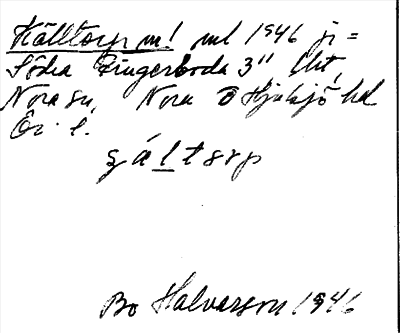 Källtorp m! ml 1946 ji =
Södra Fingerboda 3" lht,
Nora sn, Nora o Hjulsjö hd
Ör. l.
ȿáltorp
Bo Halvarson 1946